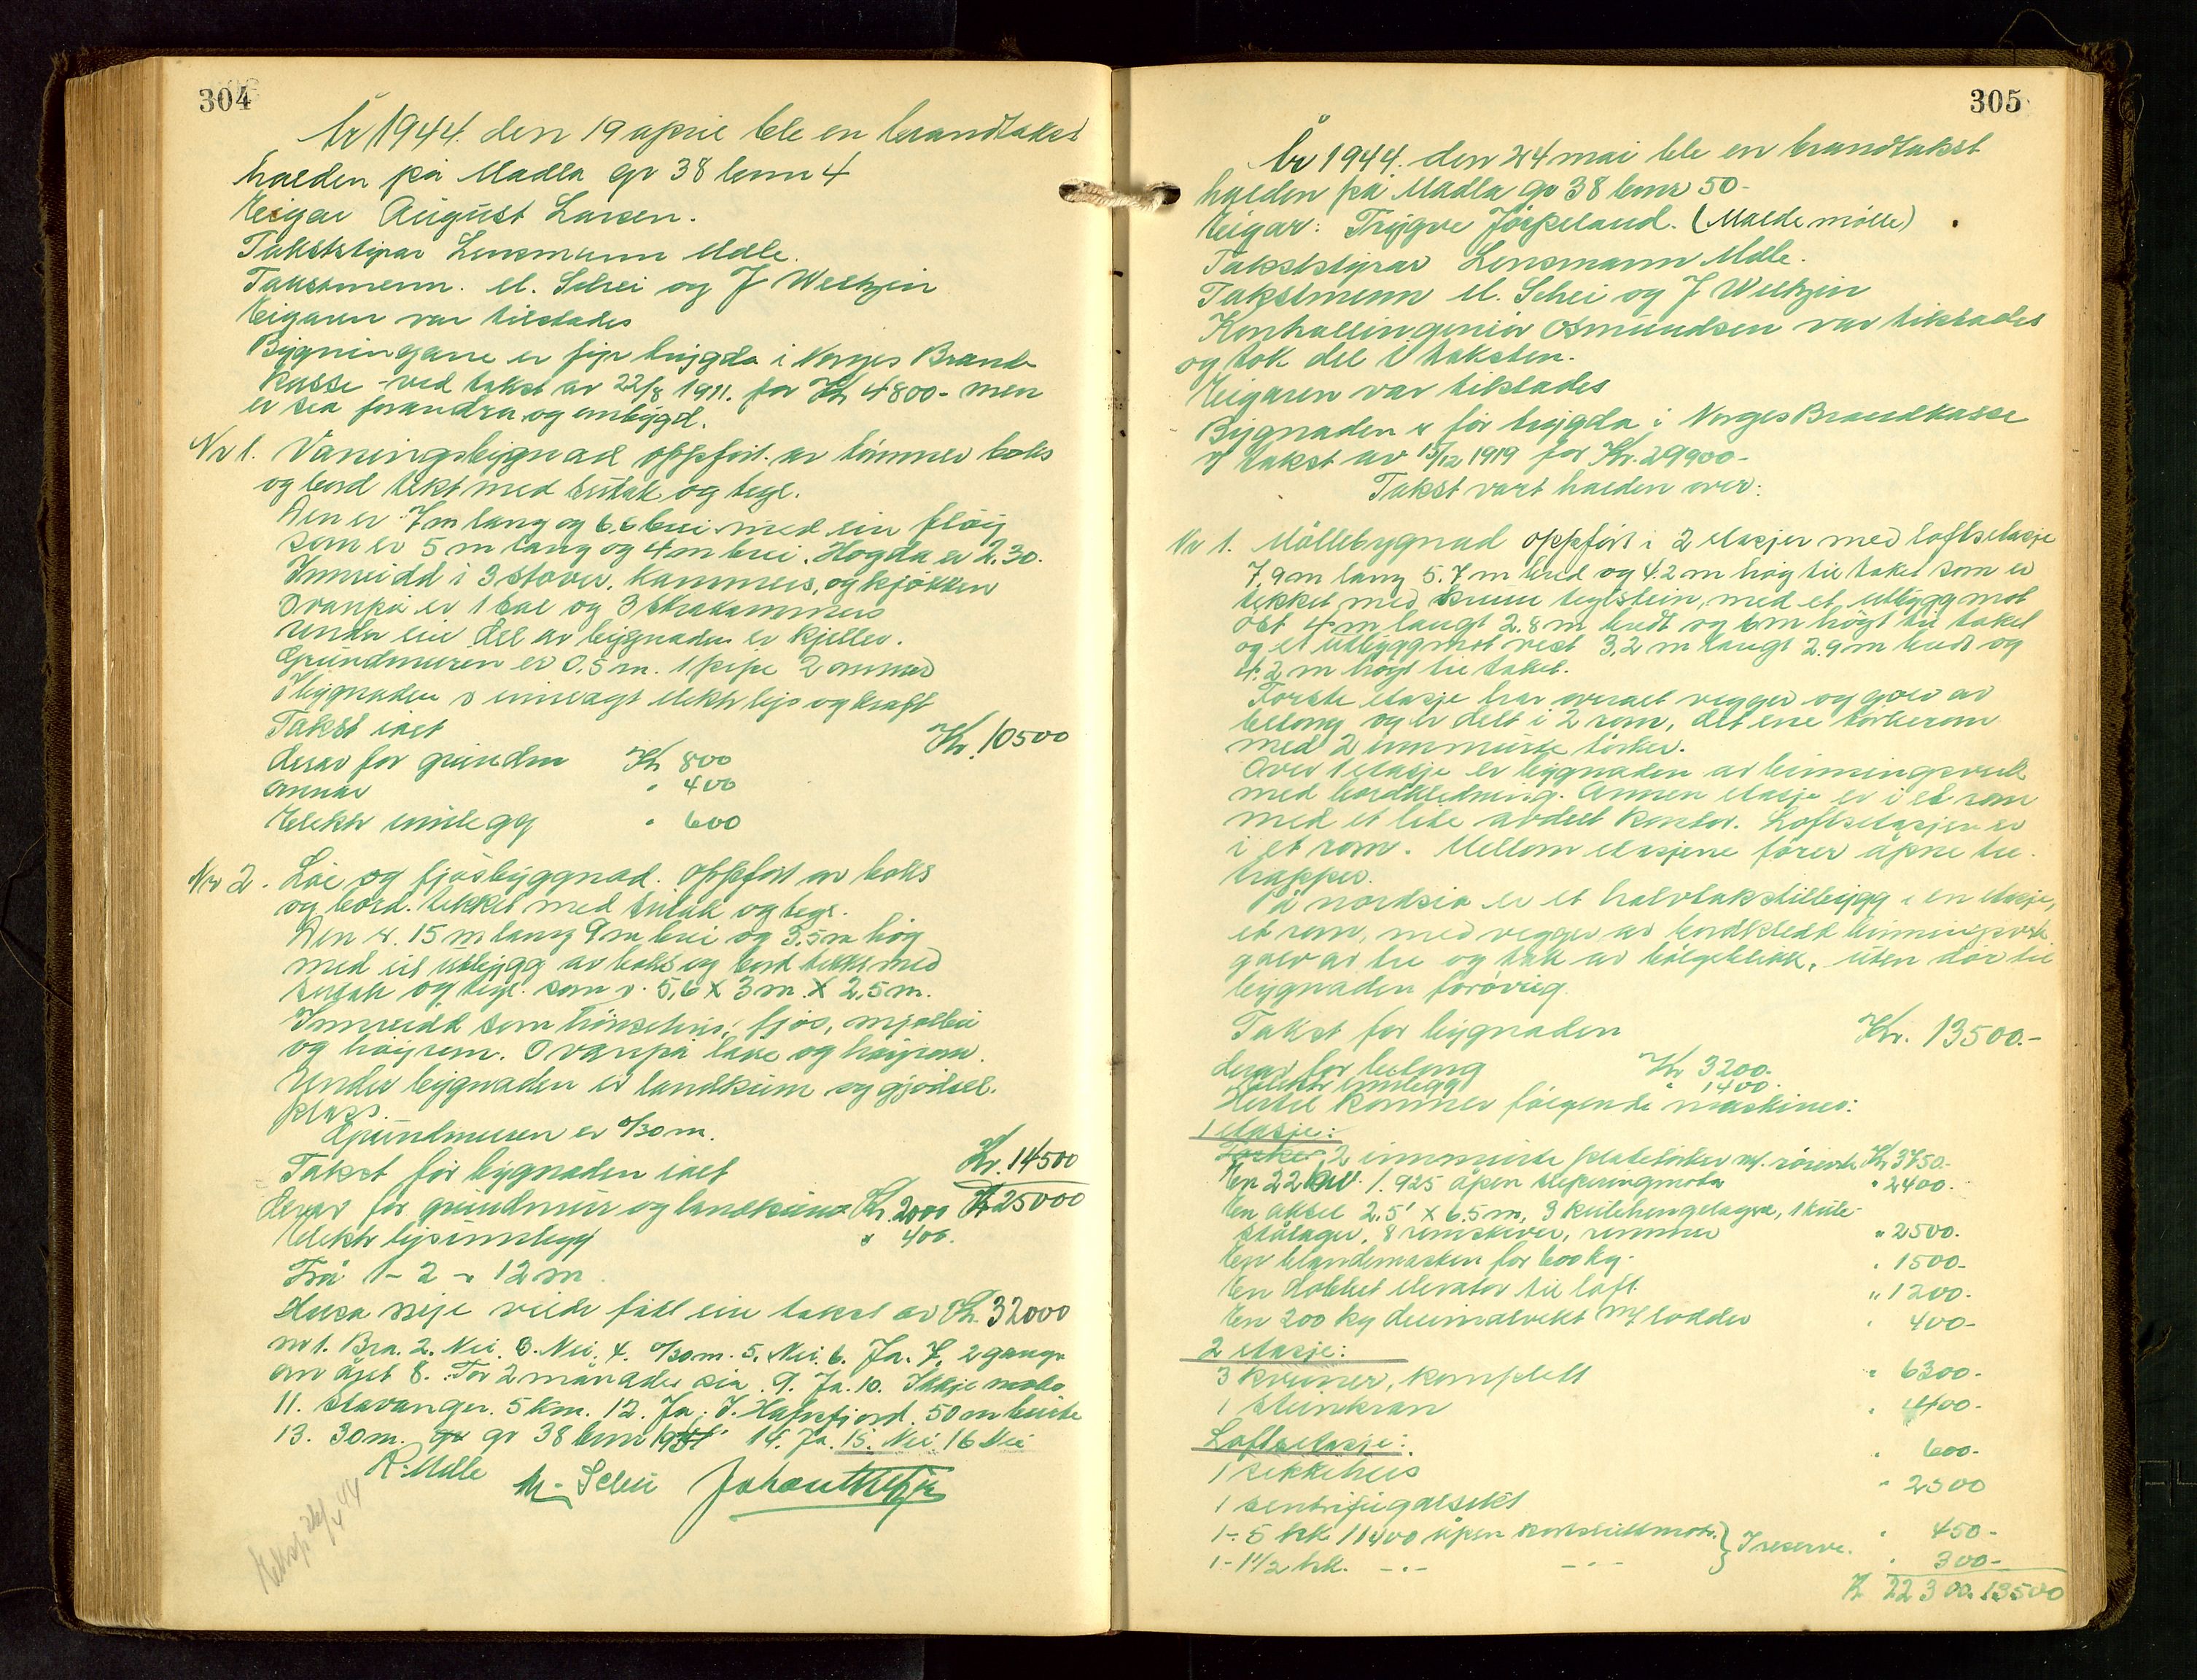 304
År 1944. den 19 april ble en brandtakst
halden på Madla gr 38 bnr 4
Eigar August Larsen.
Takststyrar Lensmann Melle.
Takstmenn. M. Schei og J Weltzin
Eigaren var tilstades
Bygningane er før trygda i Norges Brand-
kasse ved takst av 22/8 1911. for Kr 4800- men
er sea forandra og ombygd.
Nr 1. Våningsbygnad oppført av tømmer boks
og bord tekt med sutak og tegl.
Den er 7m lang og 6,6 brei med ein fløy
som er 5 m lang og 4 m brei. Høgda er 2,30.
Innreidd i 3 stover. Kammers, og kjøkken
Ovanpå er 1 sal og 3 skråkammers
Under ein del av bygnaden er kjeller.
Grundmuren er 0,5 m. 1 pipe 2 omnar
I bygnaden er innlagt elektr lys og kraft
Takst ialt Kr. 10500
derav for grundm Kr 800
omnar " 400
Elektr innlegg " 600
Nr 2. Løe og fjøsbyggnad. oppført av boks
og bord. tekket med sutak og tegl.
Den er 15 m lang 9 m brei og 3.5 m høg
med eit utbygg av boks og bord tekt med
sutak og tegl. som er 5,6 X 3 m. X 2,5 m.
Innreidd som hønsehus, fjøs, mjølbu
og høyrom. Ovanpå låve og høyrom.
Under bygnaden er landkum og gjødsel-
plass.
Grundmuren er 0/30 m.
Takst for bygnaden ialt Kr. 14500
derav for grundmur og landkum Kr. 2000 Kr 25000
Elektr lysinnlegg " 400.
Frå 1 - 2 - 12 m
Husa nije vilde fått ein takst av Kr. 32000
nr 1. Bra. 2. Nei. 3. Nei. 4. 0/30 m. 5. Nei. 6. Ja. 7. 2 gange
om året 8. For 2 månader sia. 9. Ja. 10. Ikkje
11. Stavanger. 5 km. 12. Ja. I. Hafrsfjord. 50 m
13. 30 m. gr 38 bnr 14. Ja. 15. Nei 16 Nei
R. Melle M. Schei Johan Weltzin
305
År 1944. den 24 mai ble en brandtakst
halden på Madla gr 38 bnr 50-
Eigar: Trygve Jøspeland. (Malde mølle)
Takststyrar Lensmann Melle.
Takstmenn M. Schei og J Weltzin
Kontrollingeniør Osmundsen var tilstades
og tok del i taksten.
Eigaren var tilstades
Bygnaden er før trygda i Norges Brandkasse
v/ takst av 15/12 1919 for Kr. 29900-
Takst vart halden over:
Nr 1. Møllebygnad oppført i 2 etasjer med loftsetasje
7,9 m lang 5.7 m bred og 4.2 m høg til taket som er
tekket med krum teglstein, med et utbygg mot
øst 4 m langt 2.8 m bredt og 6 m høgt til taket
og et utbygg mot vest 3,2 m langt 2.9 m bredt og
4.2 m høgt til taket.
Første etasje har overalt vegger og golv av
betong og er delt i 2 rom, det ene tørkerom
med 2 innmurte tørker.
Over 1 etasje er bygnaden av binningsverk
med bordkledning. Annen etasje er i et rom
med et lite avdelt kontor. Loftsetasjen er
i et rom. Mellom etasjene fører åpne tre-
trapper.
På nordsia er et halvtakstilbygg i en etasje,
et rom, med vegger av bordkledt binningsverk
golv av tre og tak av bølgeblikk, uten dør til
bygnaden forøvrig.
Takst for bygnaden Kr. 13500.-
derav for betong Kr 3200.
Elektr innlegg " 1400.
Hertil kommer følgende maskiner:
1 etasje:
2 innmurte platetørker m/ rørverk Kr 3750.-
En 22 1.925 åpen sleperingmotor " 2400.
En aksel 2.5' x 6.5 m, 3 kulehengelagre, 1 kule-
stålager, 8 remskiver, remmer " 2500.
En blandemaskin for 600 kg. " 1500-
En dobbelt elevator til loft. " 1200-
En 200 kg desimalvekt m/ lodder " 400-
2 etasje:
3 kverner, komplett " 6300-
1 steinkran " 400-
Loftsetasje:
1 sekkeheis " 600-
1 sentrifugalsikt " 2500
1- 5 hk. 1400 åpen kortsluttmotor } I reserve. " 450-
1- 1 1/2 hk. -.- -.- " 300-
Kr 22300. 13500